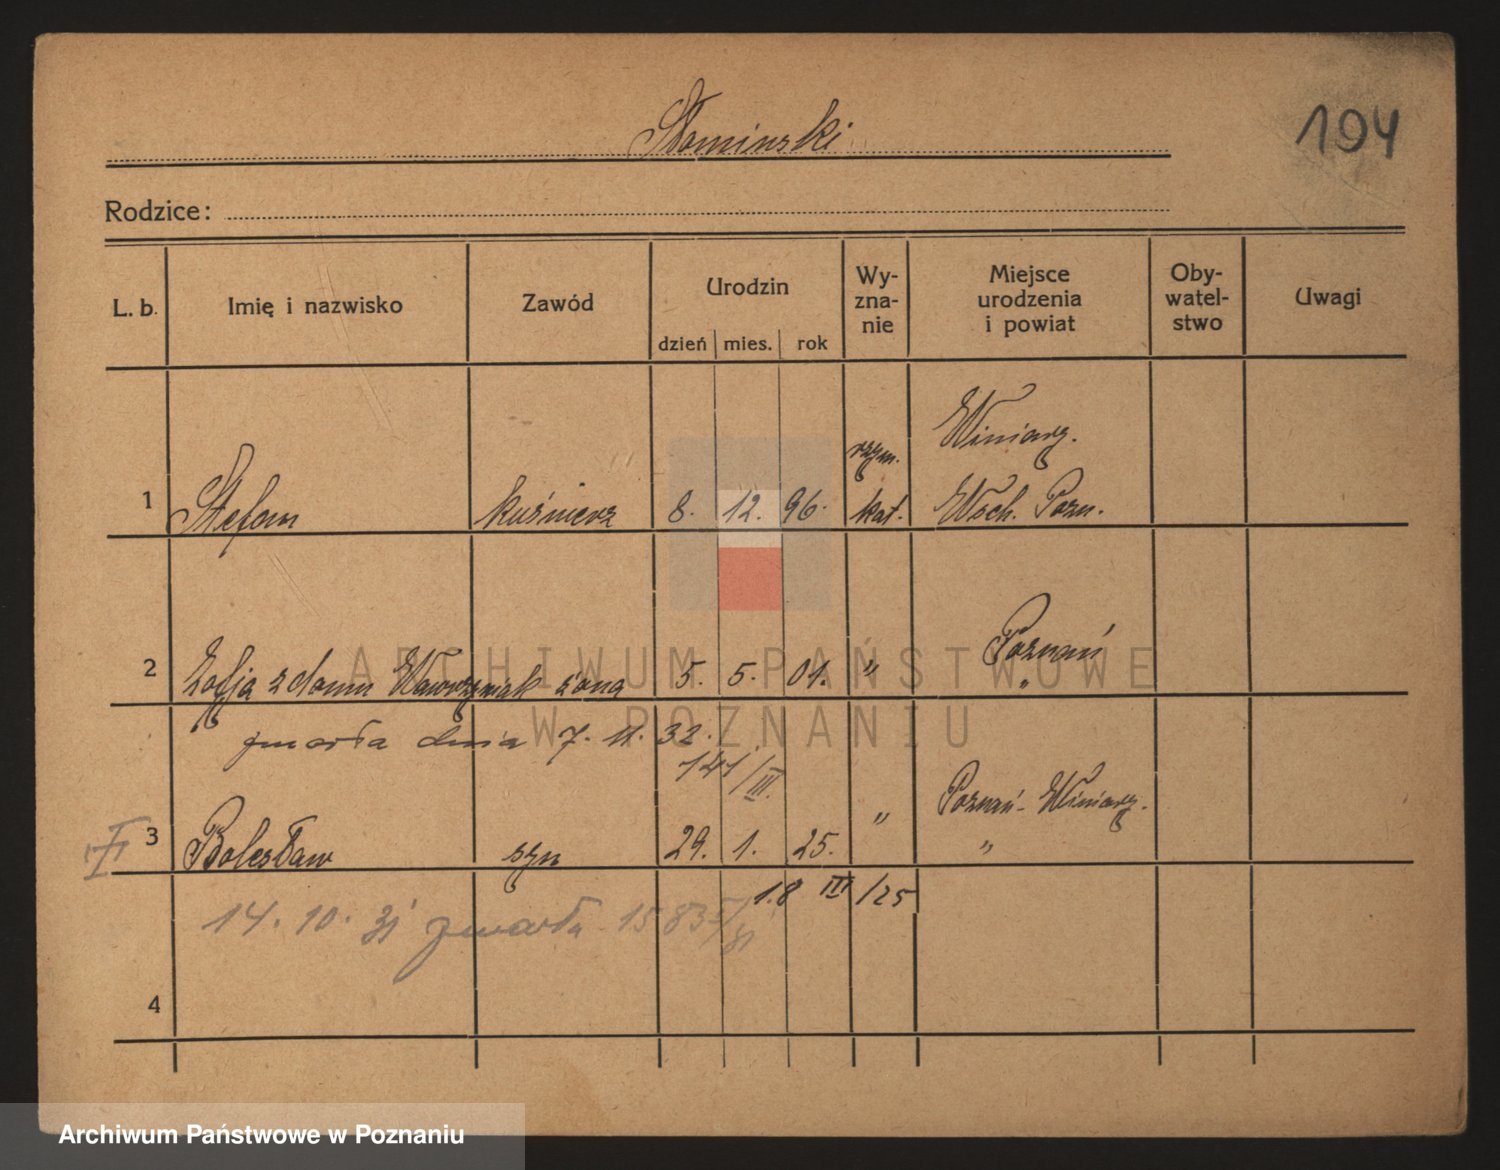 Słominski
194
Rodzice:
L. b. Imię i nazwisko Zawód Urodzin dzień mies. rok Wy-zna-nie Miejsce urodzenia i powiat Oby-watel-stwo Uwagi
Winiary.
rzym.
1 Stefan kuśnierz 8. 12. 96. kat. Wsch. Pozn.
Poznań
2 Zofja z domu Wawrzyniak żona 5. 5. 01. " "
zmarła dnia 7. 11. 32.
141/III.
Poznań - Winiary.
3 Bolesław syn 29. 1. 25. " "
18 III /25
14. 10. 31 zmarła
4
ARCHIWUM PAŃSTWOWE
W POZNANIU
Archiwum Państwowe w Poznaniu